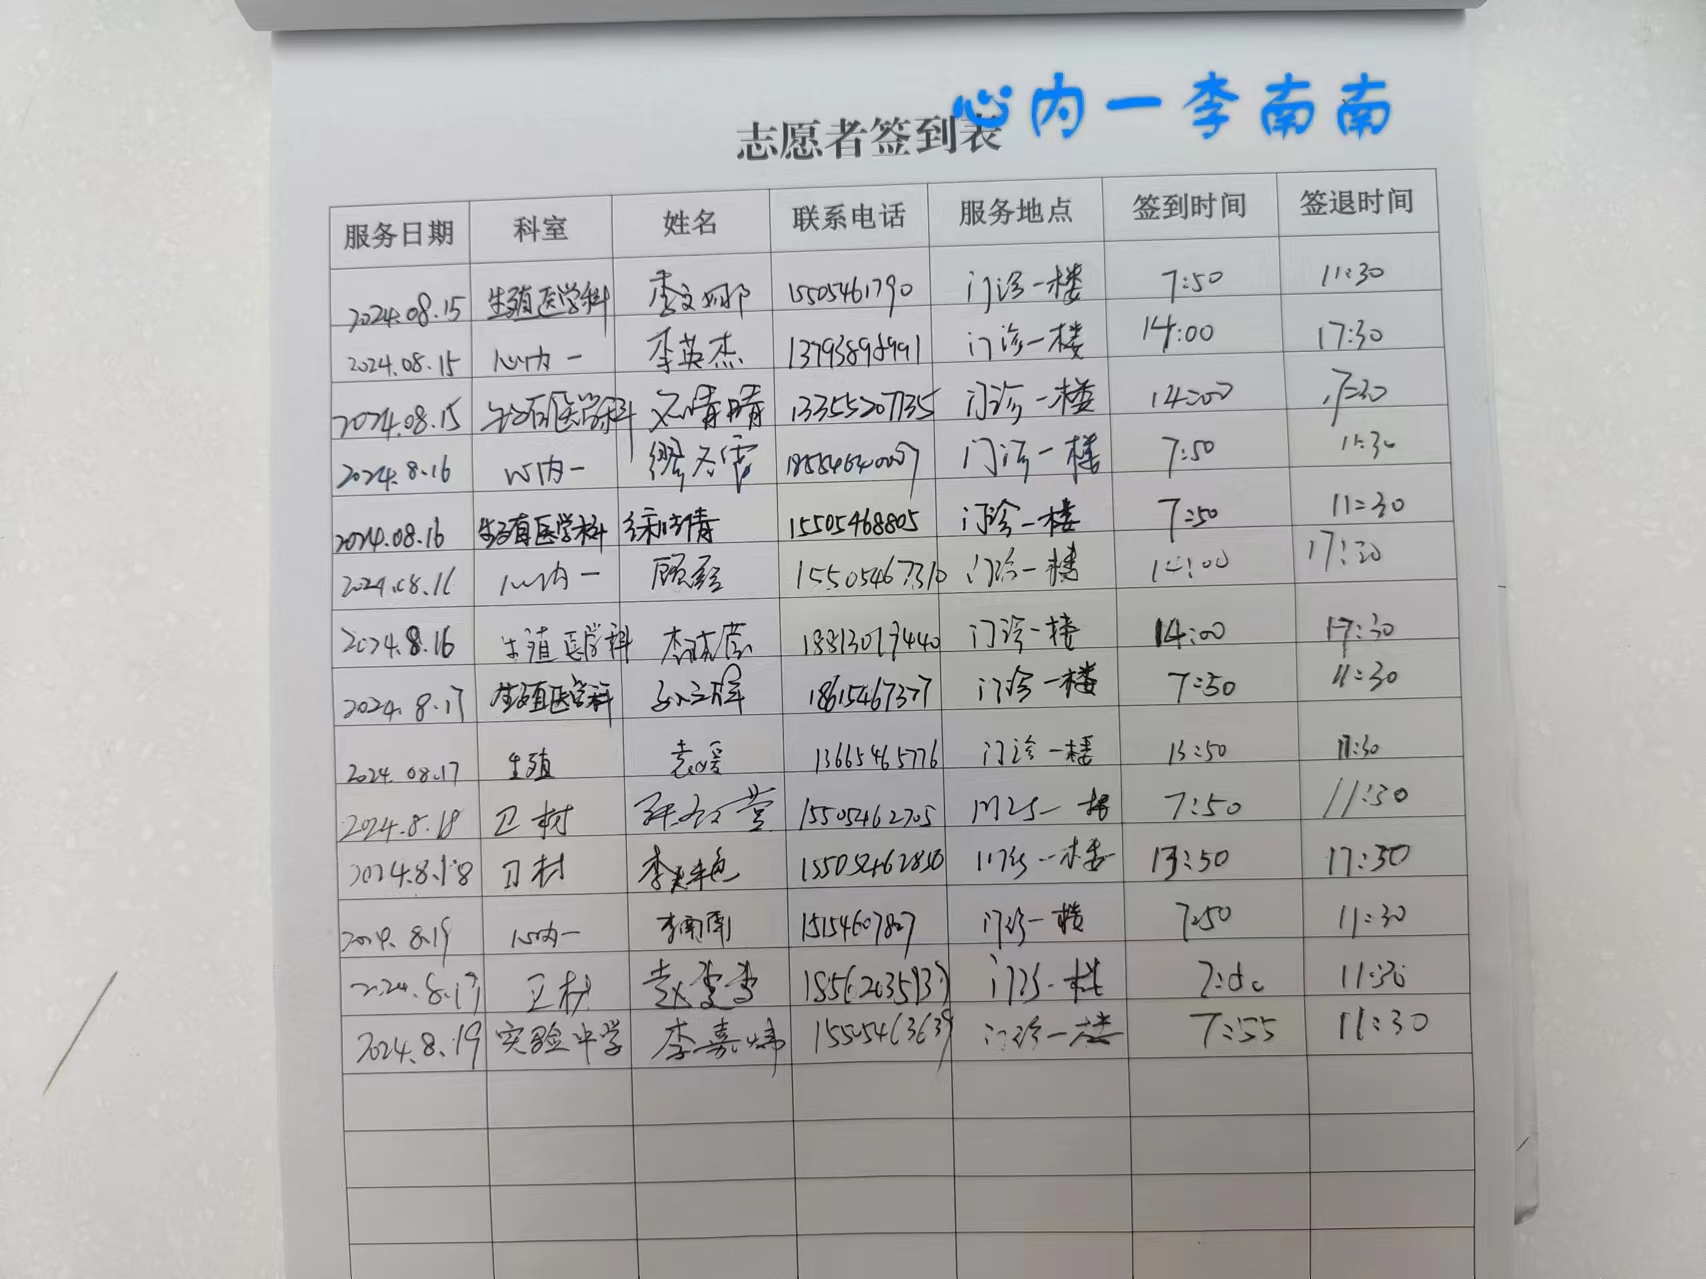 心内一李南南
志愿者签到表
服务日期 科室 姓名 联系电话 服务地点 签到时间 签退时间
2024.08.15 生殖医学科 李文娜 15505461790 门诊一楼 7:50 11:30
2024.08.15 心内一 李英杰 门诊一楼 14:00 17:30
2024.08.15 生殖医学科 晴晴 13355207735 门诊一楼 14:00 17:30
2024.8.16 心内一 缪 门诊一楼 7:50 11:30
2024.08.16 生殖医学科 徐倩 15505468805 门诊一楼 7:50 11:30
2024.08.16 心内一 顾 15505467310 门诊一楼 14:00 17:30
2024.8.16 生殖医学科 李 门诊一楼 14:00 17:30
2024.8.17 生殖医学科 18615467377 门诊一楼 7:50 11:30
2024.08.17 生殖 袁媛 13665465776 门诊一楼 13:50
2024.8.18 卫材 15505462705 门诊一楼 7:50 11:30
2024.8.18 卫材 李 15505462850 门诊一楼 13:50 17:30
2024.8.19 心内一 李南南 15154607827 门诊一楼 7:50 11:30
2024.8.19 卫材 赵雪雪 门诊一楼 7:50 11:30
2024.8.19 实验中学 李嘉 15505463639 门诊一楼 7:55 11:30